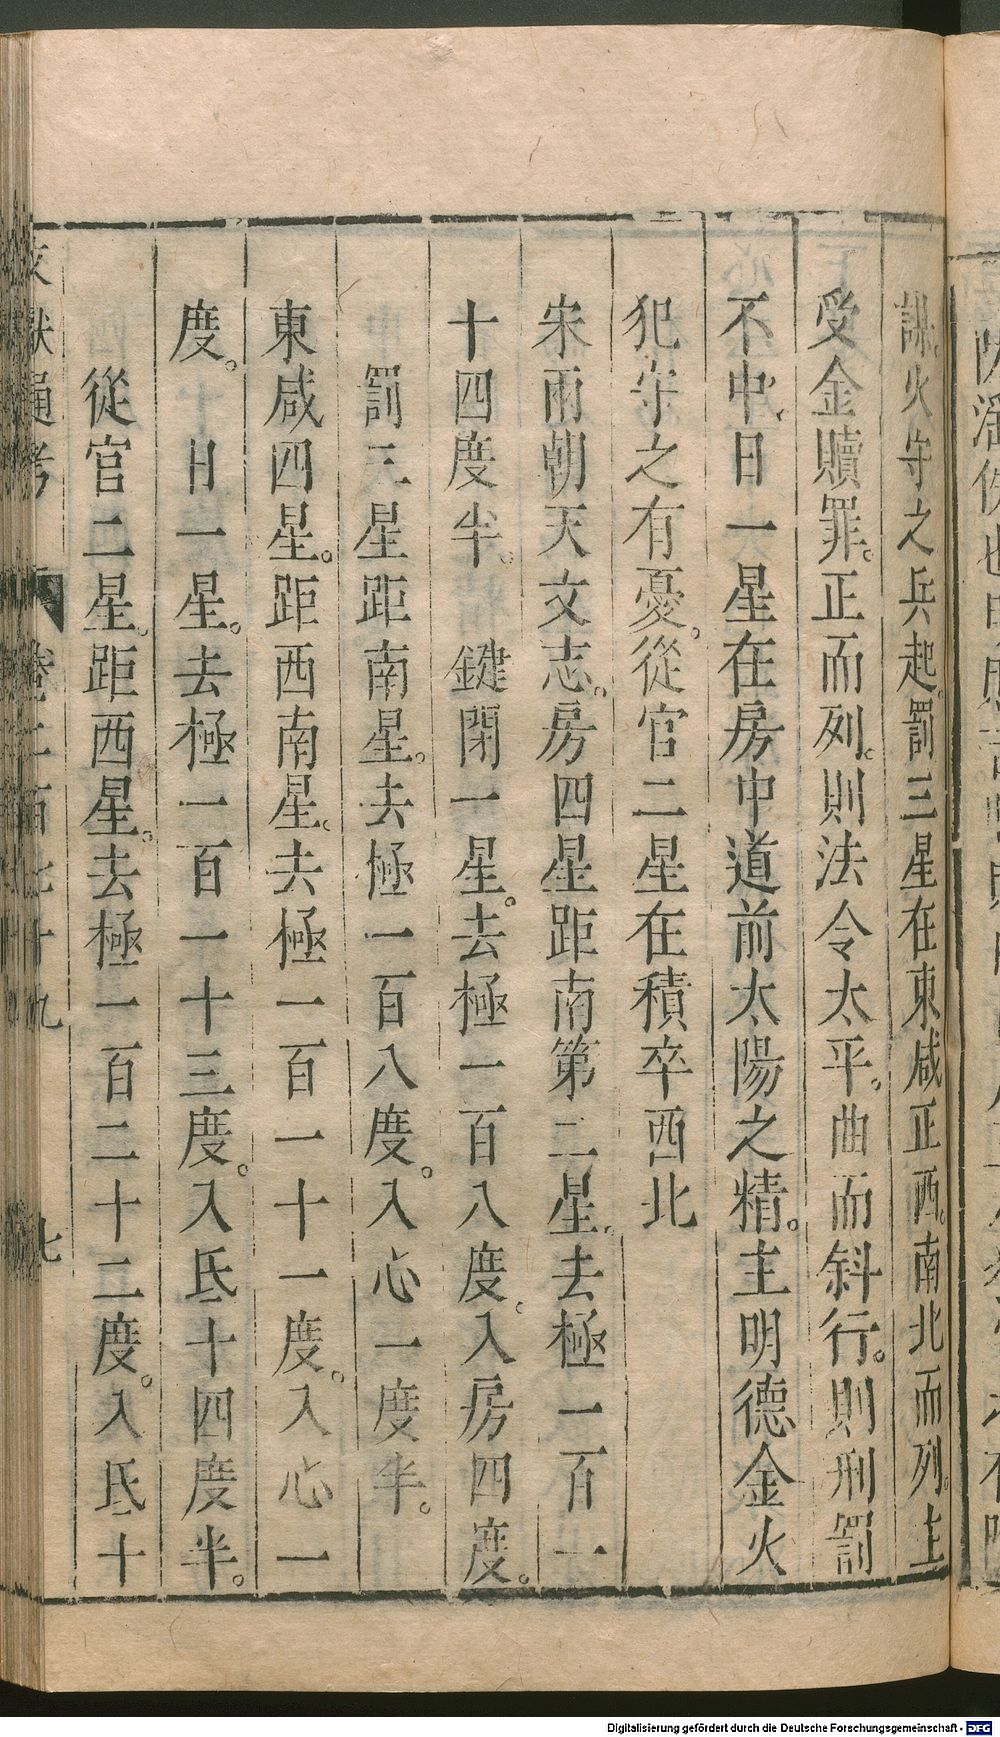 謀。火守之兵起。罰三星在東咸正西。南北而列。主
受金贖罪。正而列。則法令太平。曲而斜行。則刑罰
不中。日一星在房中道前太陽之精。主明德金火
犯守之有憂。從官二星在積卒西北
宋兩朝天文志。房四星距南第二星。去極一百一
十四度半。 鍵閉一星。去極一百八度。入房四度。
罰三星距南星。去極一百八度。入心一度半。
東咸四星。距西南星。去極一百一十一度。入心一
度。 日一星。去極一百一十三度。入氐十四度半。
從官二星。距西星。去極一百二十二度。入氐十
文獻通考 卷二百七十九 七
Digitalisierung gefördert durch die Deutsche Forschungsgemeinschaft - DFG